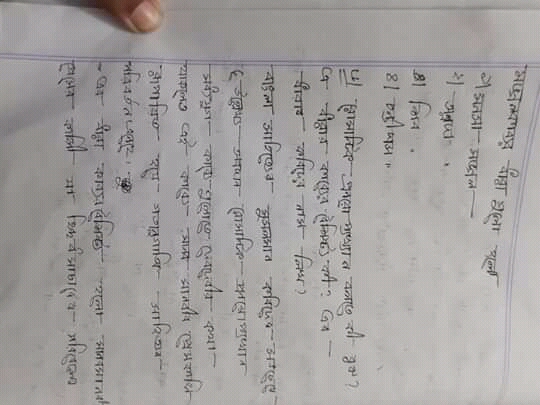 মঙ্গলকাব্যের ধারা গুলো হলো
১। মনসা মঙ্গল —
২। অন্নদা "
৩। শিব "
৪। চন্ডীদাস "
৫। রোমান্টিক প্রনয়োপাখ্যান বলতে কী বুঝ?
এ ধারার কাব্যের বৈশিষ্ট্য কী? এর
ধারার কবিদের নাম লিখ?
বাংলা সাহিত্যের মুসলমান কবিদের সবচেয়ে
উল্লেখ্য অবদান রোমান্টিক প্রনয়োপাখ্যান
মধ্যযুগ কাব্যে গুলোতে দেবদেবীর কথা
থাকলেও এই কাব্যে মানব মানবীর প্রেমকাহিনি
রূপায়িত হয়ে গতানুগতি সাহিত্যের
পরিবর্তন এনেছে।
- এর ধারা কাব্যের বৈশিষ্ট্য হলো মানবমানবী
প্রেমের কাহিনী যা হিন্দু পরিবেশের